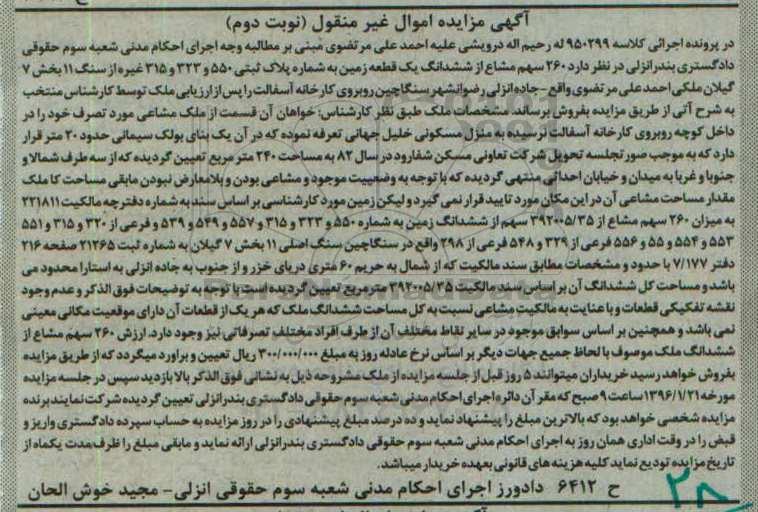 آگهی مزایده اموال غیر منقول (نوبت دوم)
در پرونده اجرائی کلاسه ۹۵۰۲۹۹ له رحیم اله درویشی علیه احمد علی مرتضوی مبنی بر مطالبه وجه اجرای احکام مدنی شعبه سوم حقوقی
دادگستری بندرانزلی در نظر دارد ۲۶۰ سهم مشاع از ششدانگ یک قطعه زمین به شماره پلاک ثبتی ۵۵۰ و ۳۲۳ و ۳۱۵ غیره از سنگ ۱۱ بخش ۷
گیلان ملکی احمد علی مرتضوی واقع - جاده انزلی رضوانشهر سنگاچین روبروی کارخانه آسفالت را پس از ارزیابی ملک توسط کارشناس منتخب
به شرح آتی از طریق مزایده بفروش برساند. مشخصات ملک طبق نظر کارشناس: خواهان آن قسمت از ملک مشاعی مورد تصرف خود را در
داخل کوچه روبروی کارخانه آسفالت نرسیده به منزل مسکونی خلیل جهانی تعرفه نموده که در آن یک بنای بولک سیمانی حدود ۲۰ متر قرار
دارد که به موجب صورتجلسه تحویل شرکت تعاونی مسکن شفارود در سال ۸۲ به مساحت ۲۴۰ متر مربع تعیین گردیده که از سه طرف شمالا و
جنوبا و غربا به میدان و خیابان احداثی منتهی گردیده که با توجه به وضعیت موجود و مشاعی بودن و بلامعارض نبودن مابقی مساحت کا ملک
مقدار مساحت مشاعی آن در این مکان مورد تایید قرار نمی گیرد و لیکن زمین مورد کارشناسی بر اساس سند به شماره دفترچه مالکیت ۲۲۱۸۱۱
به میزان ۲۶۰ سهم مشاع از ۳۹۲۰۰۵/۳۵ سهم از ششدانگ زمین به شماره ۵۵۰ و ۳۲۳ و ۳۱۵ و ۵۵۷ و ۵۴۹ و ۵۳۹ و فرعی از ۳۲۰ و ۳۱۵ و ۵۵۱
۵۵۳ و ۵۵۴ و ۵۵ و ۵۵۶ فرعی از ۳۲۹ و ۵۴۸ فرعی از ۲۹۸ واقع در سنگاچین سنگ اصلی ۱۱ بخش ۷ گیلان به شماره ثبت ۲۱۲۶۵ صفحه ۲۱۶
دفتر ۷/۱۷۷ با حدود و مشخصات مطابق سند مالکیت که از شمال به حریم ۶۰ متری دریای خزر و از جنوب به جاده انزلی به استارا محدود می
باشد و مساحت کل ششدانگ آن بر اساس سند مالکیت ۳۹۲۰۰۵/۳۵ متر مربع تعیین گردیده است با توجه به توضیحات فوق الذکر و عدم وجود
نقشه تفکیکی قطعات و با عنایت به مالکیت مشاعی نسبت به کل مساحت ششدانگ ملک که هر یک از قطعات آن دارای موقعیت مکانی معینی
نمی باشد و همچنین بر اساس سوابق موجود در سایر نقاط مختلف آن از طرف افراد مختلف تصرفاتی نیز وجود دارد. ارزش ۲۶۰ سهم مشاع از
ششدانگ ملک موصوف با لحاظ جمیع جهات دیگر بر اساس نرخ عادله روز به مبلغ ۳۰۰/۰۰۰/۰۰۰ ریال تعیین و براورد میگردد که از طریق مزایده
بفروش خواهد رسید خریداران میتوانند ۵ روز قبل از جلسه مزایده از ملک مشروحه ذیل به نشانی فوق الذکر بالا بازدید سپس در جلسه مزایده
مورخه ۱۳۹۶/۱/۲۱ ساعت ۹ صبح که مقر آن دائره اجرای احکام مدنی شعبه سوم حقوقی دادگستری بندرانزلی تعیین گردیده شرکت نمایند برنده
مزایده شخصی خواهد بود که بالاترین مبلغ را پیشنهاد نماید و ده درصد مبلغ پیشنهادی را در روز مزایده به حساب سپرده دادگستری واریز و
قبض را در وقت اداری همان روز به اجرای احکام مدنی شعبه سوم حقوقی دادگستری بندرانزلی ارائه نماید و مابقی مبلغ را ظرف مدت یکماه از
تاریخ مزایده تودیع نماید کلیه هزینه های قانونی بعهده خریدار میباشد.
ح ۶۴۱۲ دادورز اجرای احکام مدنی شعبه سوم حقوقی انزلی - مجید خوش الحان
۲۸